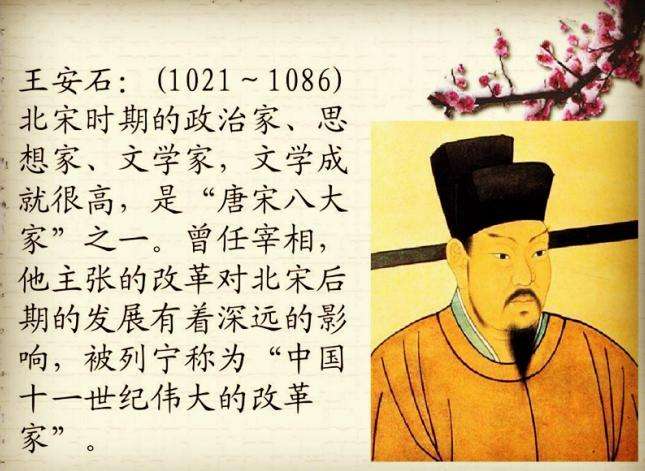 王安石：(1021~1086)
北宋时期的政治家、思
想家、文学家，文学成
就很高，是“唐宋八大
家”之一。曾任宰相，
他主张的改革对北宋后
期的发展有着深远的影
响，被列宁称为“中国
十一世纪伟大的改革
家”。